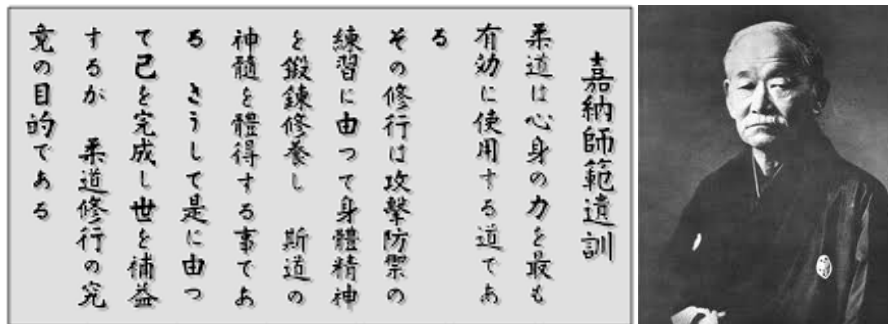 嘉納師範遺訓
柔道は心身の力を最も
有効に使用する道であ
る
その修行は攻撃防禦の
練習に由つて身體精神
を鍛錬修養し　斯道の
神髄を體得する事であ
る　さうして是に由つ
て己を完成し世を補益
するが　柔道修行の究
竟の目的である